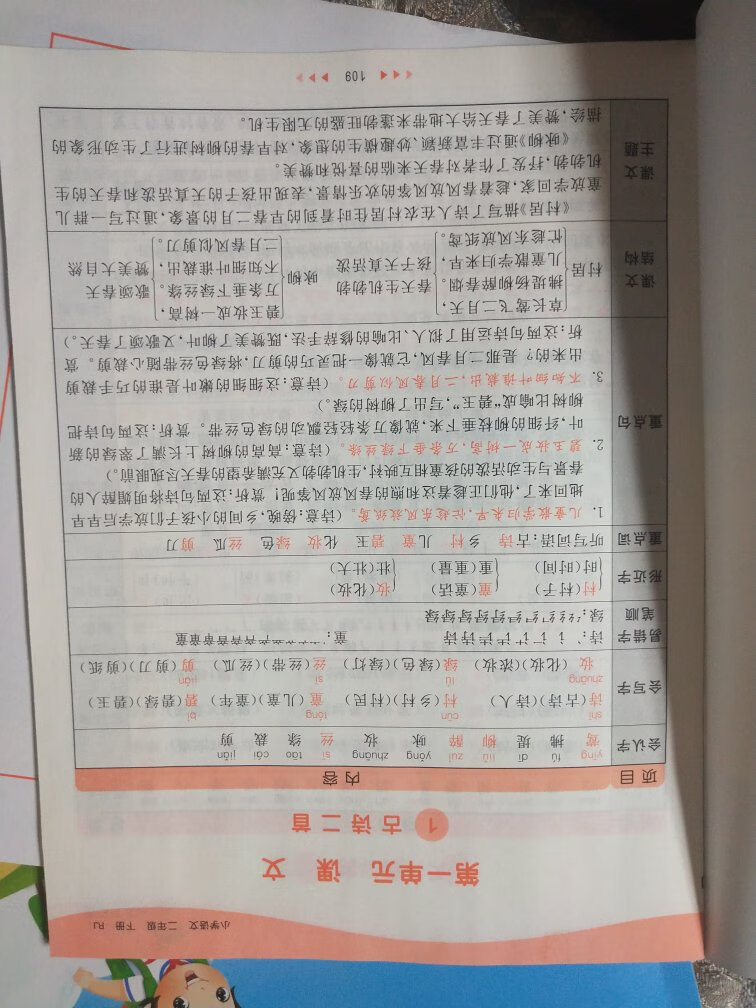 小学语文 二年级 下册 RJ
第一单元 课 文
1 古诗二首
项目 内 容
yīng fú dī liǔ zuì yǒng zhuāng sī tāo cái jiǎn
会认字 莺 拂 堤 柳 醉 咏 妆 丝 绦 裁 剪
shī cūn tóng bì
诗(古诗)(诗人) 村(乡村)(村民) 童(儿童)(童年) 碧(碧绿)(碧玉)
会写字
zhuāng lǜ sī jiǎn
妆(化妆)(浓妆) 绿(绿色)(绿灯) 丝(丝带)(丝瓜) 剪(剪刀)(剪纸)
易错字
笔 顺
诗: 童:
绿:
形近字
村(村子) 童(童话) 妆(化妆)
时(时间) 重(重量) 壮(壮大)
重点词 听写词语:古诗 乡村 儿童 碧玉 化妆 绿色 丝瓜 剪刀
重点句
1. 儿童散学归来早,忙趁东风放纸鸢。(诗意:傍晚,乡间的小孩子们放学后早早
地回来了,他们正趁着这和煦的春风放风筝呢!赏析:这两句诗将明媚醉人的
春景与生动活泼的孩童相互映衬,生机勃勃又充满希望的春天尽现眼前。)
2. 碧玉妆成一树高,万条垂下绿丝绦。(诗意:高高的柳树上长满了翠绿的新
叶,纤细的柳枝垂下来,就像万条轻轻飘动的绿色丝带。赏析:这两句诗把
柳树比喻成“碧玉”,写出了柳树的绿。)
3. 不知细叶谁裁出,二月春风似剪刀。(诗意:这细细的嫩叶是谁的巧手裁剪
出来的?是那二月春风,它就像一把灵巧的剪刀,将绿色丝带随心裁剪。赏
析:这两句诗运用了拟人、比喻的修辞手法,既赞美了柳叶,又歌颂了春天。)
课文
结构
村居
草长莺飞二月天,
拂堤杨柳醉春烟。
儿童散学归来早,
忙趁东风放纸鸢。
春天生机勃勃
孩子天真活泼
咏柳
碧玉妆成一树高,
万条垂下绿丝绦。
不知细叶谁裁出,
二月春风似剪刀。
歌颂春天
赞美大自然
课文
主题
《村居》描写了诗人在农村居住时看到的早春二月的景象,通过写一群儿
童放学回家,趁着春风放风筝的欢乐情景,表现出孩子的天真活泼和春天的生
机勃勃,抒发了作者对春天来临的喜悦和赞美。
《咏柳》通过丰富新颖、妙趣横生的想象,对早春的柳树进行了生动形象的
描绘,赞美了春天给大地带来蓬勃旺盛的无限生机。
109